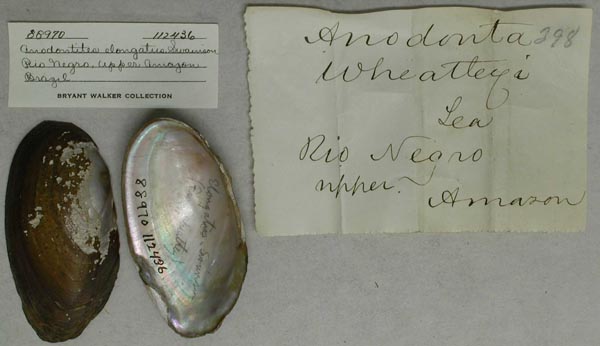 88970 112436
Anodontites elongatus Swainson
Rio Negro, Upper Amazon
Brazil
BRYANT WALKER COLLECTION
Anodonta 398
Wheatleyi
Lea
Rio Negro
upper. Amazon
Elongatus
88970 112436